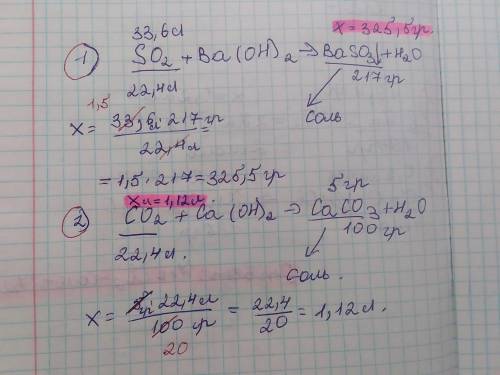 33,6л x = 325,5гр.
1) SO2 + Ba(OH)2 → BaSO3↓ + H2O
22,4л 217гр
соль
1,5
x = 33,6л · 217гр / 22,4л =
= 1,5 · 217 = 325,5гр
xл = 1,12л. 5гр
2) CO2 + Ca(OH)2 → CaCO3 + H2O
22,4л. 100гр
соль.
x = 5гр · 22,4л / 100гр = 22,4 / 20 = 1,12л.
20